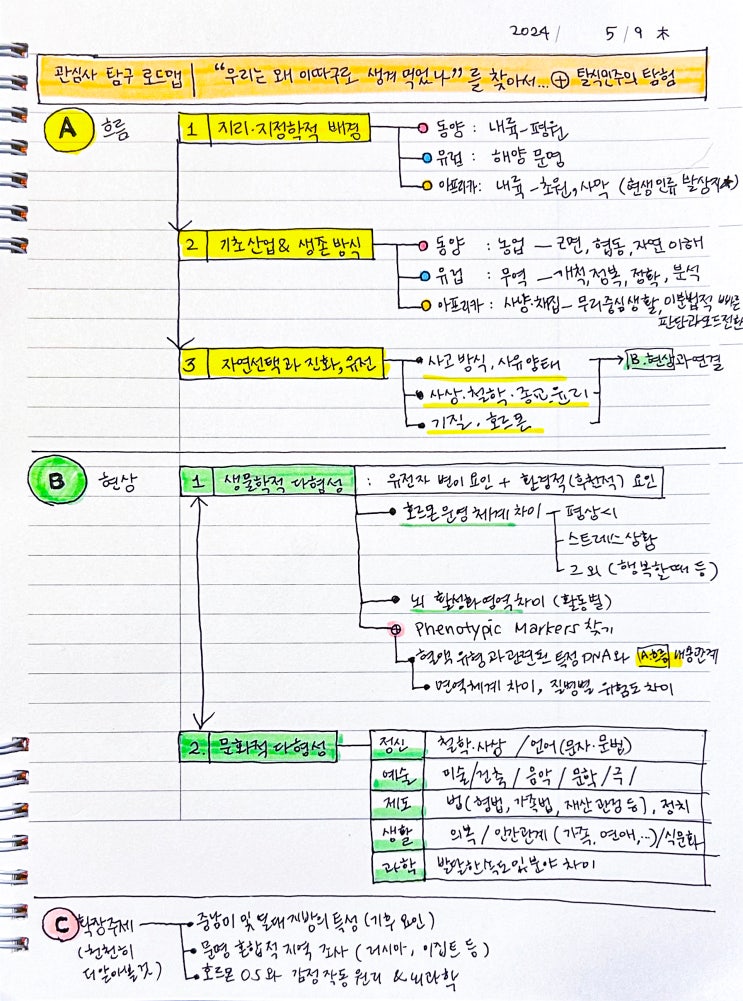 2024 / 5 / 9 木
관심사 탐구 로드맵 | "우리는 왜 이따구로 생겨먹었나"를 찾아서... ⊕ 탈식민주의 탐험
A 흐름
1 지리·지정학적 배경
동양 : 내륙-평원
유럽 : 해양 문명
아프리카 : 내륙-초원, 사막 (현생인류 발상지★)
2 기초산업 & 생존 방식
동양 : 농업 — 근면, 협동, 자연 이해
유럽 : 무역 — 개척, 정복, 정학, 분석
아프리카 : 사냥·채집 — 무리중심생활, 이분법적 빠른
판단과 모드전환
3 자연선택과 진화, 유전
사고 방식, 사유양태
사상·철학·종교·윤리
기질·호르몬
B.현상과 연결
B 현상
1 생물학적 다형성 : 유전자 변이 요인 + 환경적(후천적) 요인
호르몬 운영 체계 차이
평상시
스트레스 상황
그 외 (행복할 때 등)
뇌 활성화 영역 차이 (활동별)
⊕ Phenotypic Markers 찾기
혈액 유형과 관련된 특정 DNA와 A.흐름 대응관계
면역체계 차이, 질병별 위험도 차이
2. 문화적 다형성
정신 철학·사상 / 언어(문자·문법)
예술 미술/건축 / 음악 / 문학 / 극 /
제도 법(형법, 가족법, 재산관점 등), 정치
생활 의복 / 인간관계 (가족, 연애, ...) / 식문화
과학 발달한 속도 및 분야 차이
C 확장주제
(천천히
더 알아볼 것)
중남미 및 열대 지방의 특성 (기후 요인)
문명 혼합적 지역 조사 (러시아, 이집트 등)
호르몬 OS와 감정 작동 원리 & 뇌과학